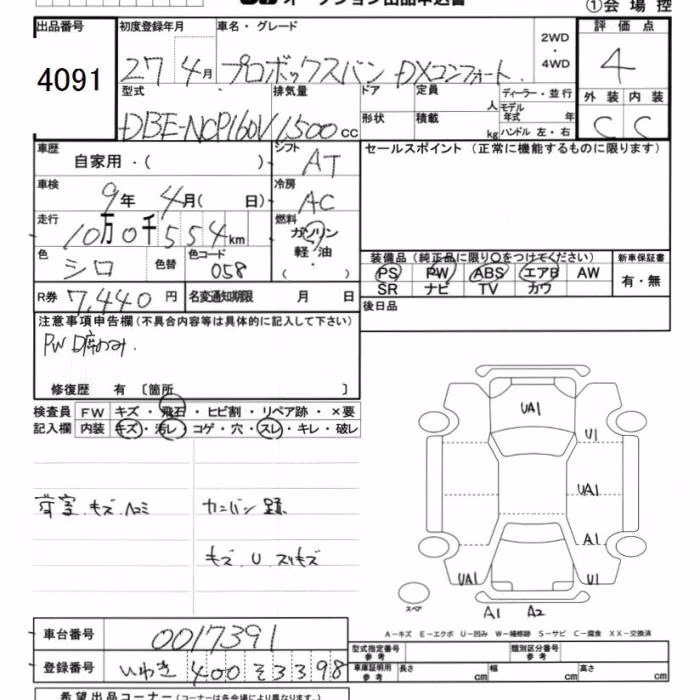 オークション出品申込書 ①会場控
出品番号 初度登録年月 車名・グレード 2WD・4WD 評価点
4091 27年4月 プロボックスバン DXコンフォート 4
型式 排気量 ドア 定員 人 ディーラー・並行 外装 内装
DBE-NCP160V 1500cc 形状 積載 kg モデル年式 年 ハンドル 左・右 C C
車歴 自家用・( ) シフト AT セールスポイント (正常に機能するものに限ります)
車検 9年 4月( 日) 冷房 AC
走行 10万0千554km 燃料 ガソリン 軽・油 ( ・ )
色 シロ 色替 色コード 058 装備品(純正品に限り○をつけてください) 新車保証書
PS PW ABS エアB AW 有・無
SR ナビ TV カワ
R券 7,440円 名変通知期限 月 日 後日品
注意事項申告欄(不具合内容等は具体的に記入して下さい)
PW
修復歴 有 〔箇所 〕
検査員 FW キズ・飛石・ヒビ割・リペア跡・×要
記入欄 内装 キズ・汚レ・コゲ・穴・スレ・キレ・破レ
荷室 キズ ヘコミ カンバン跡
キズ U スリキズ
UA1
U1
UA1
A1
UA1 U1
スペア A1 A2
A-キズ E-エクボ U-凹み W-補修跡 S-サビ C-腐食 XX-交換済
車台番号 0017391 型式指定番号 参考 類別区分番号 参考
登録番号 いわき 400 そ 3398 車庫証明用 参考 長さ cm 幅 cm 高さ cm
希望出品コーナー(コーナーは各会場により異なります。)